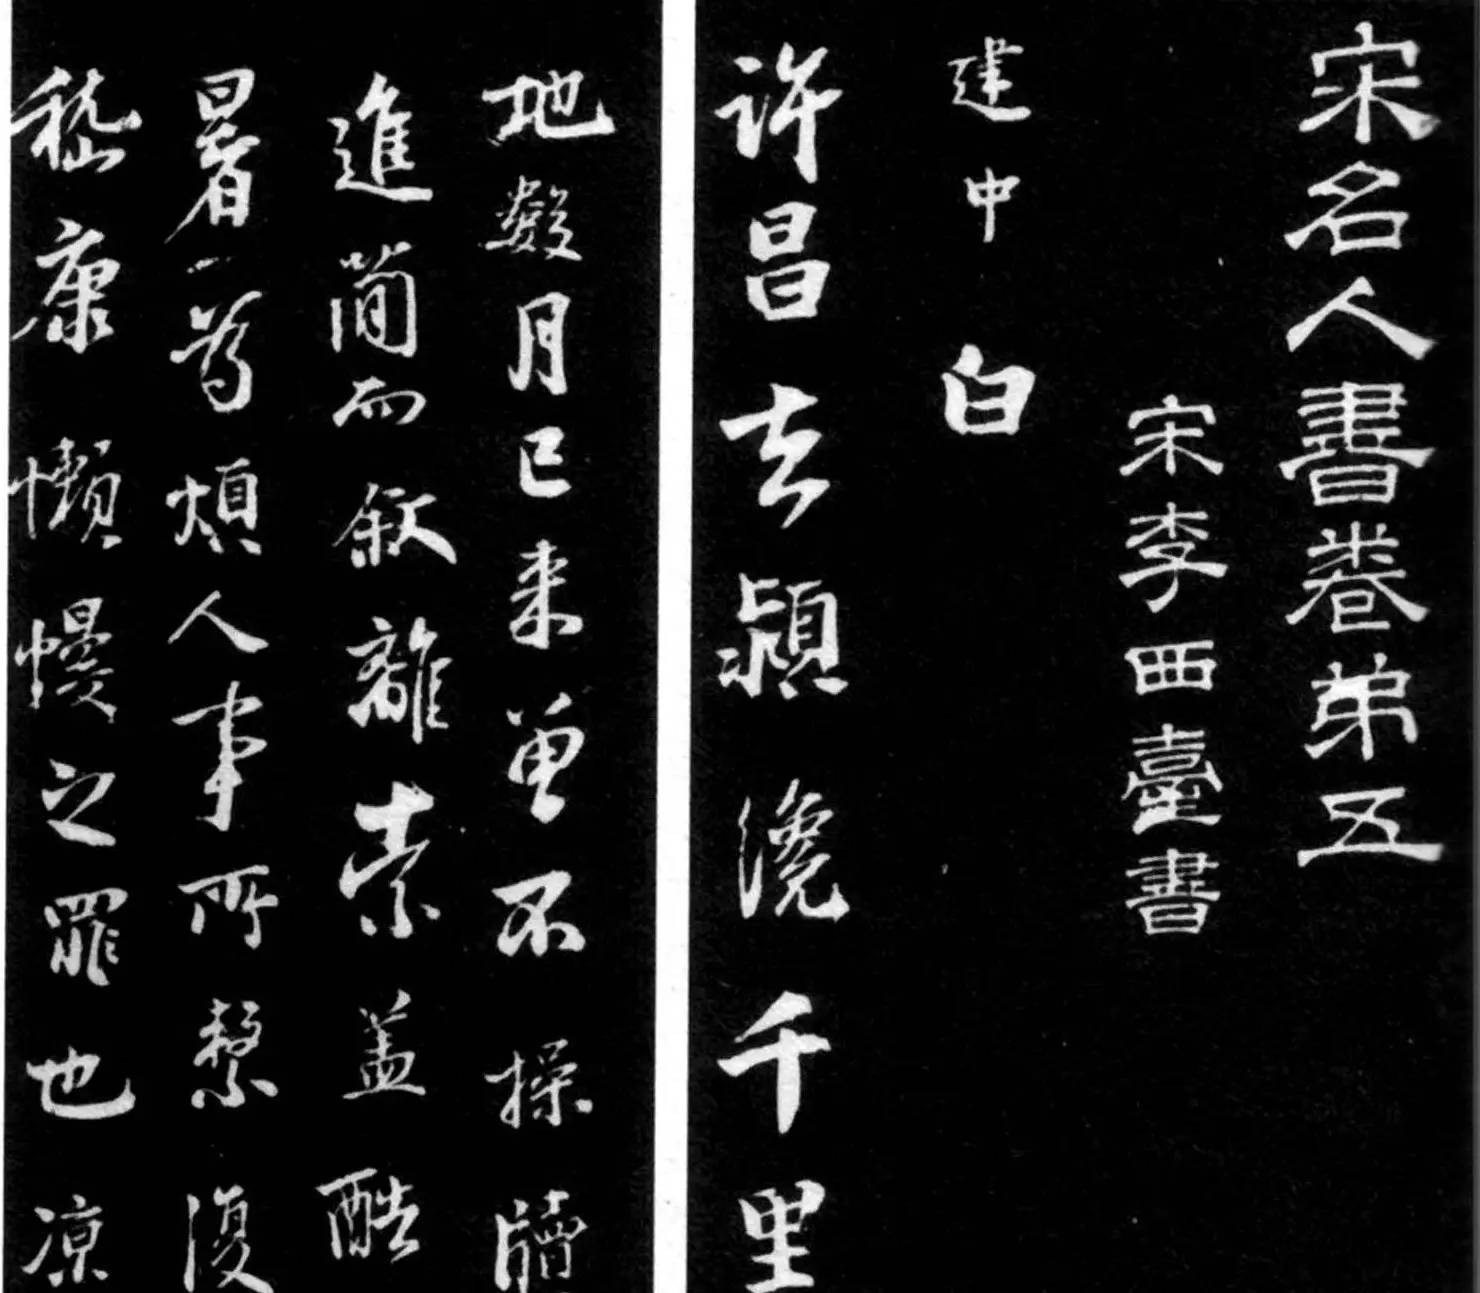 宋名人書卷弟五
宋李西臺書
建中白
許昌去潁纔千里
地數月已来曽不操牘
進簡而叙離索盖酷
暑一為煩人事所繫復
嵇康懶慢之罪也凉